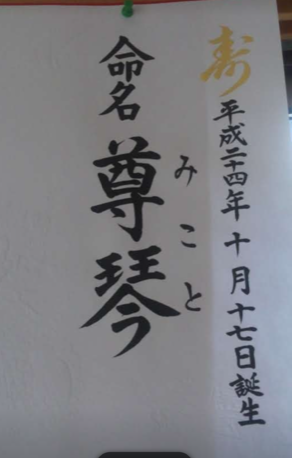 寿
平成二十四年十月十七日誕生
命名 尊琴
みこと